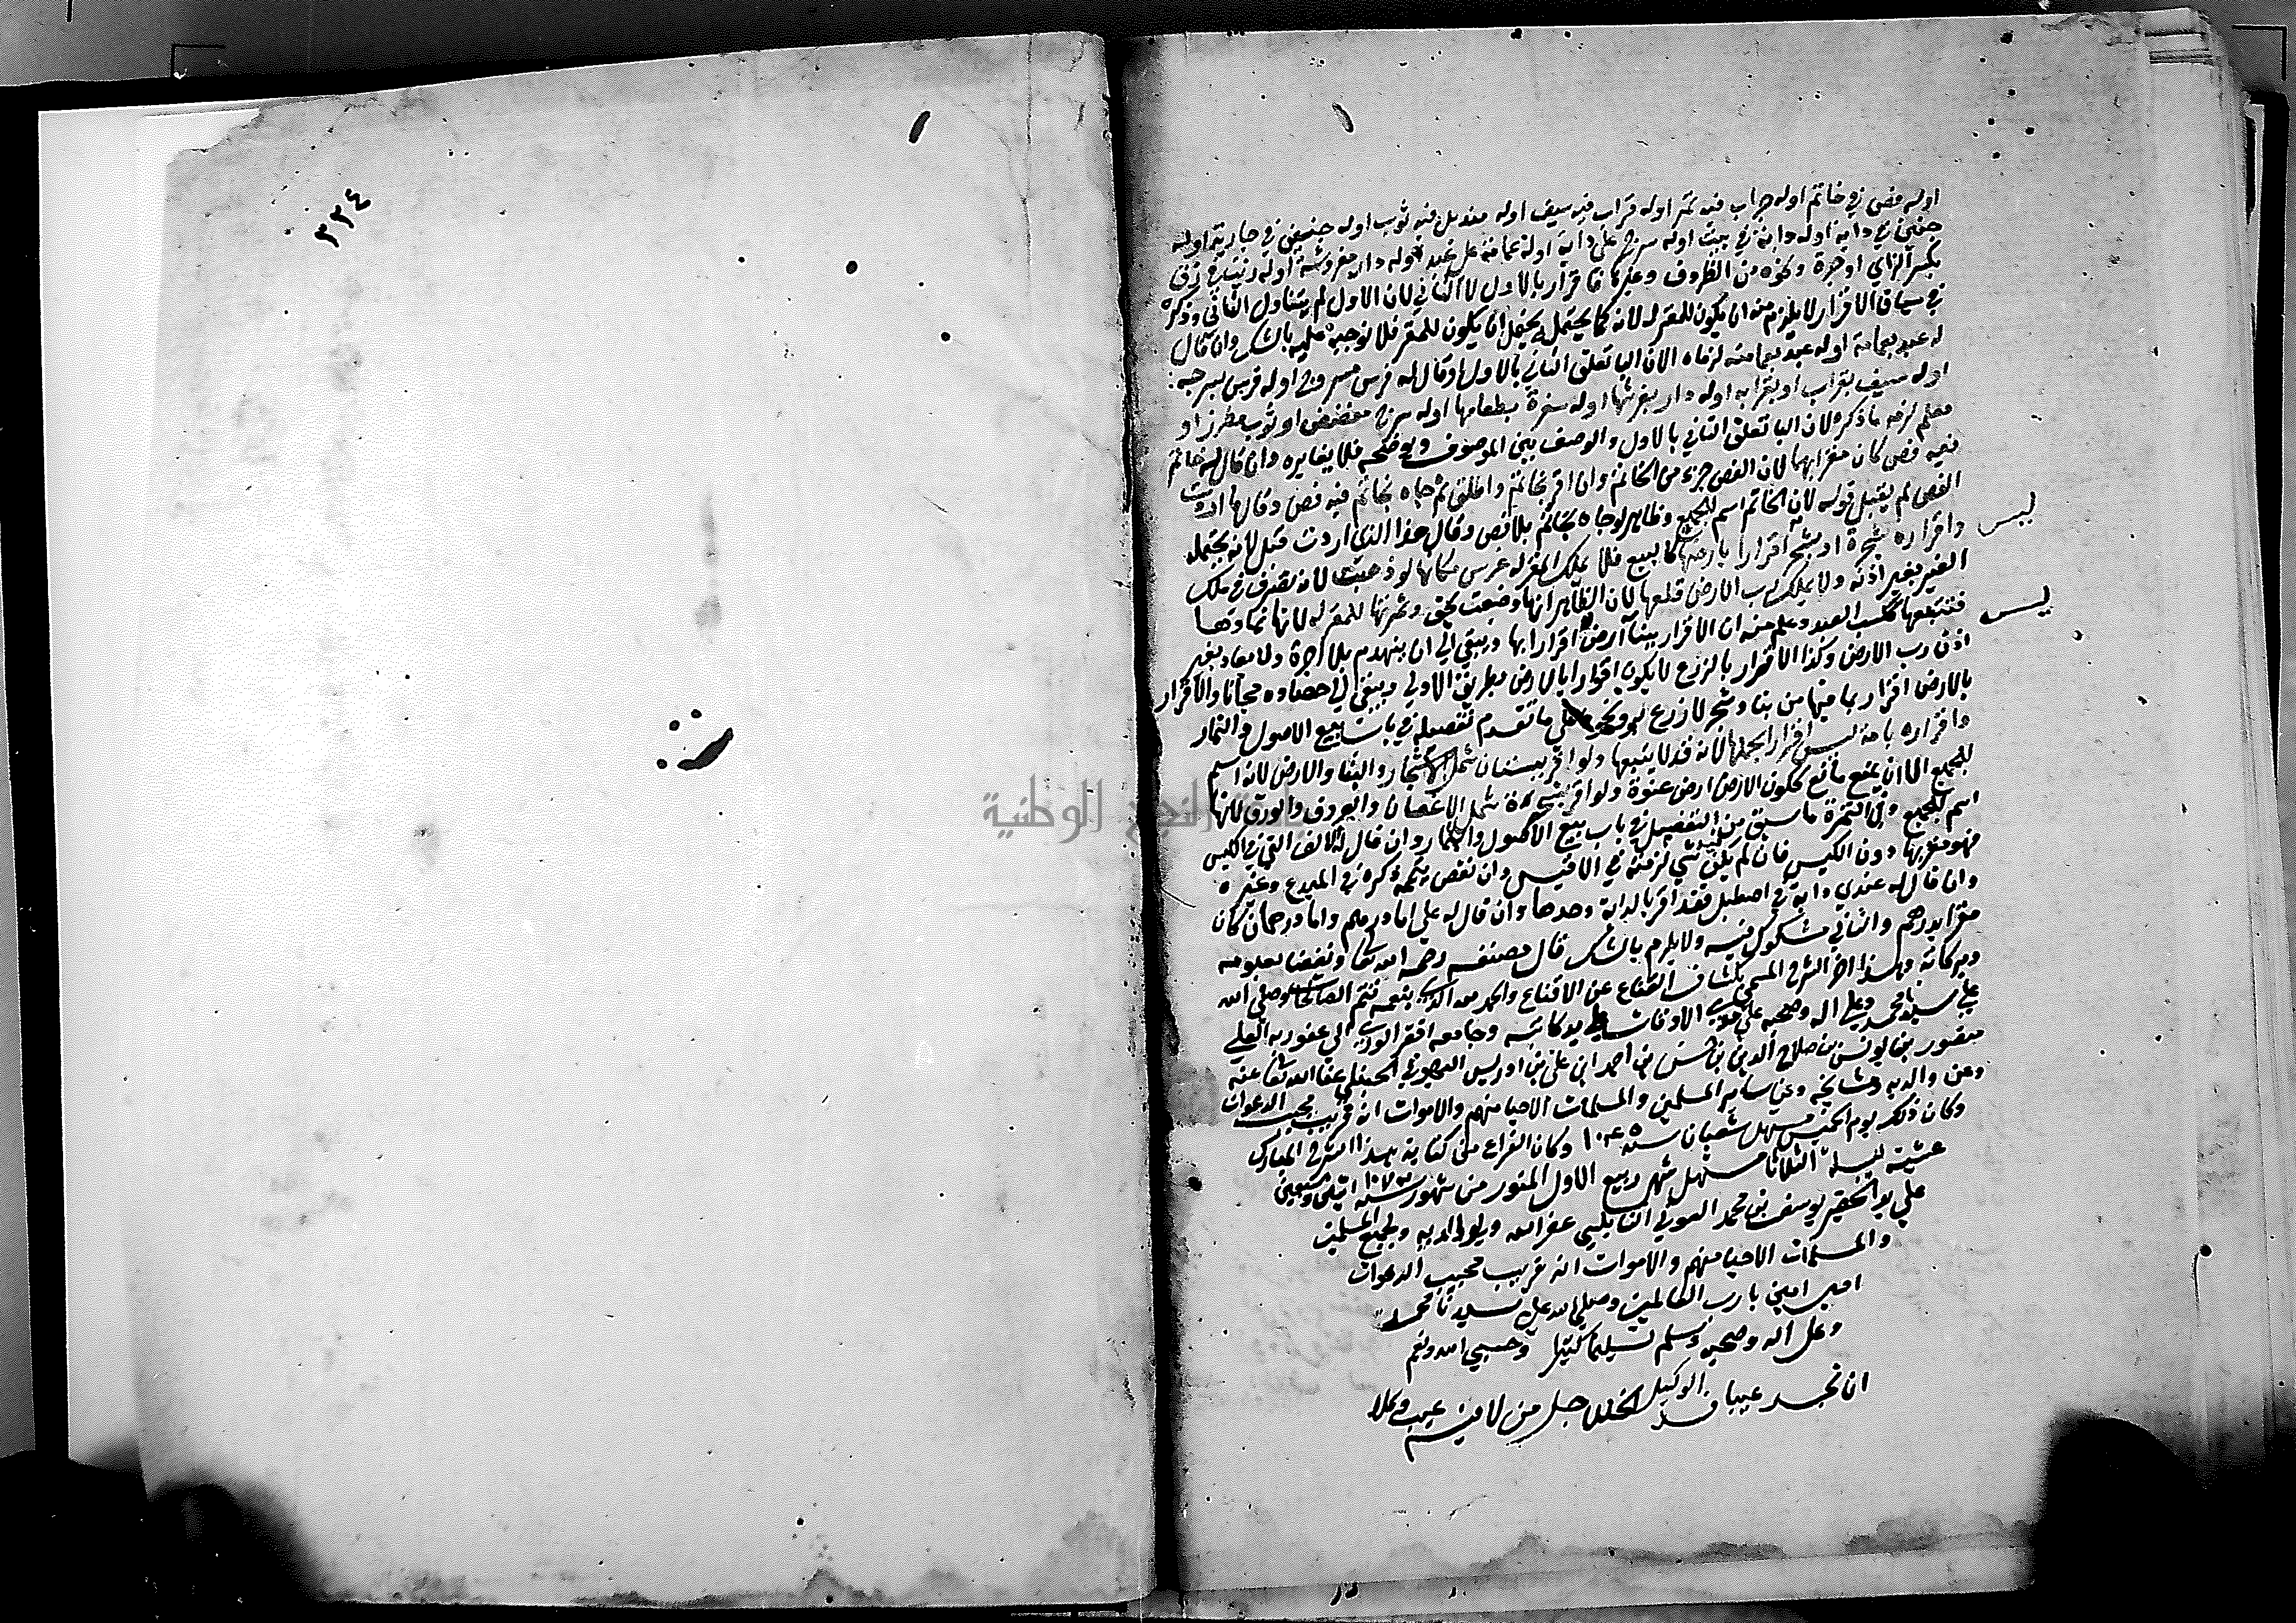 اوله فص في خاتم اوله جراب فيه تمر اوله قراب فيه سيف اوله منديل فيه ثوب اوله جنين في جارية اوله
جنين في دابة اوله دابة في بيت اوله سرج على دابة اوله عمامة على عبد اوله دار مفروشة اوله زيت في زق
بكسر الزاي او جرة ونحوه من الظروف وغيرها فاقرار بالاول لا الثاني لان الاول لم يتناول الثاني وذكره
في سياق الاقرار لا يلزم منه ان يكون للمقر له لانه كما يحتمل يحتمل ان يكون للمقر فلا نوجبه عليه بالشك وان قال
له عبد بعمامة اوله عبد بعمامته لزماه لان البا تعلق الثاني بالاول اوقال له فرس مسروج اوله فرس بسرجه
اوله سيف بقراب او بقرابه اوله دار بفرشها اوله سفرة بطعامها اوله سرج مفضض او ثوب مطرز او
معلم لزمه ما ذكره لان البا تعلق الثاني بالاول والوصف يبين الموصوف ويوضحه فلا يغايره وان قال له خاتم
فيه فص كان مقرا بهما لان الفص جزء من الخاتم وان اقر بخاتم واطلق ثم جاه بخاتم فيه فص وقال ما اردت
الفص لم يقبل قوله لان الخاتم اسم للجميع وظاهره لو جاه بخاتم بلا فص وقال هذا الذي اردت قبل لانه يحتمله
واقراره بشجرة او بشجر ليس اقرارا بارضها كالبيع فلا يملك المقر له غرس مكانها لو ذهبت لانه تصرف في ملك
الغير بغير اذنه ولا يملك رب الارض قلعها لان الظاهر انها وضعت بحق وثمرتها للمقر له لانها نماوها
فتتبعها ككسب العبد وعلم منه ان الاقرار ببنا ارض ليس اقرارا بها ويبقى الى ان ينهدم بلا اجرة ولا يعاد بغير
اذن رب الارض وكذا الاقرار بالزرع لا يكون اقرارا بالارض بطريق الاولى ويبقى الى حصاده مجانا والاقرار
بالارض اقرار بما فيها من بنا وشجر لا زرع بر ونحوه على ما تقدم تفصيله في باب بيع الاصول والثمار
واقراره بامة ليس اقرارا بحملها لانه قد لا يتبعها ولو اقر ببستان شمل الاشجار والبنا والارض لانه اسم
للجميع الا ان يمنع مانع ككون الارض ارض عنوة ولو اقر بشجرة شمل الاغصان والعروق والورق لانها
اسم للجميع وفي الثمرة ما سبق من التفصيل في باب بيع الاصول والثمار وان قال له الالف التي في الكيس
فهو مقر بها دون الكيس فان لم يكن فيه شي لزمته في الاقيس وان نقص يتمه ذكره في المبدع وغيره
وان قال له عندي دابة في اصطبل فقد اقر بالدابة وحدها وان قال له علي اما درهم واما درهمان كان
مقرا بدرهم والثاني مشكوك فيه ولا يلزم بالشك قال مصنفه رحمه الله تعا ونفعنا بعلومه
وبركاته وهذا اخر الشرح المسمى بكشاف القناع عن الاقناع والحمد لله الذي بنعمه تتم الصالحات وصلى الله
على سيدنا محمد وعلى اله وصحبه على مدى الاوقات على يد كاتبه وجامعه افقر الورى الى عفو ربه العلي
منصور بن يونس بن صلاح الدين بن حسن بن احمد ابن علي بن ادريس البهوتي الحنبلي عفا الله تعا عنه
وعن والديه ومشايخه وعن ساير المسلمين والمسلمات الاحيا منهم والاموات انه قريب مجيب الدعوات
وكان ذلك يوم الخميس مستهل شعبان سنة ١٠٤٥ وكان الفراغ من كتابة هذا الشرح المبارك
عشية ليلة الثلاثا مستهل شهر ربيع الاول المنور من شهور سنة اثنين وسبعين
على يد الحقير يوسف بن محمد النابلسي غفر الله له ولوالديه ولجميع المسلمين
والمسلمات الاحيا منهم والاموات انه قريب مجيب الدعوات
امين امين يا رب العالمين وصلى الله على سيدنا محمد
وعلى اله وصحبه وسلم تسليما كثيرا وحسبي الله ونعم
الوكيل
ان تجد عيبا فسد الخللا جل من لا فيه عيب وعلا
٣٣٤
النجاح الوطنية